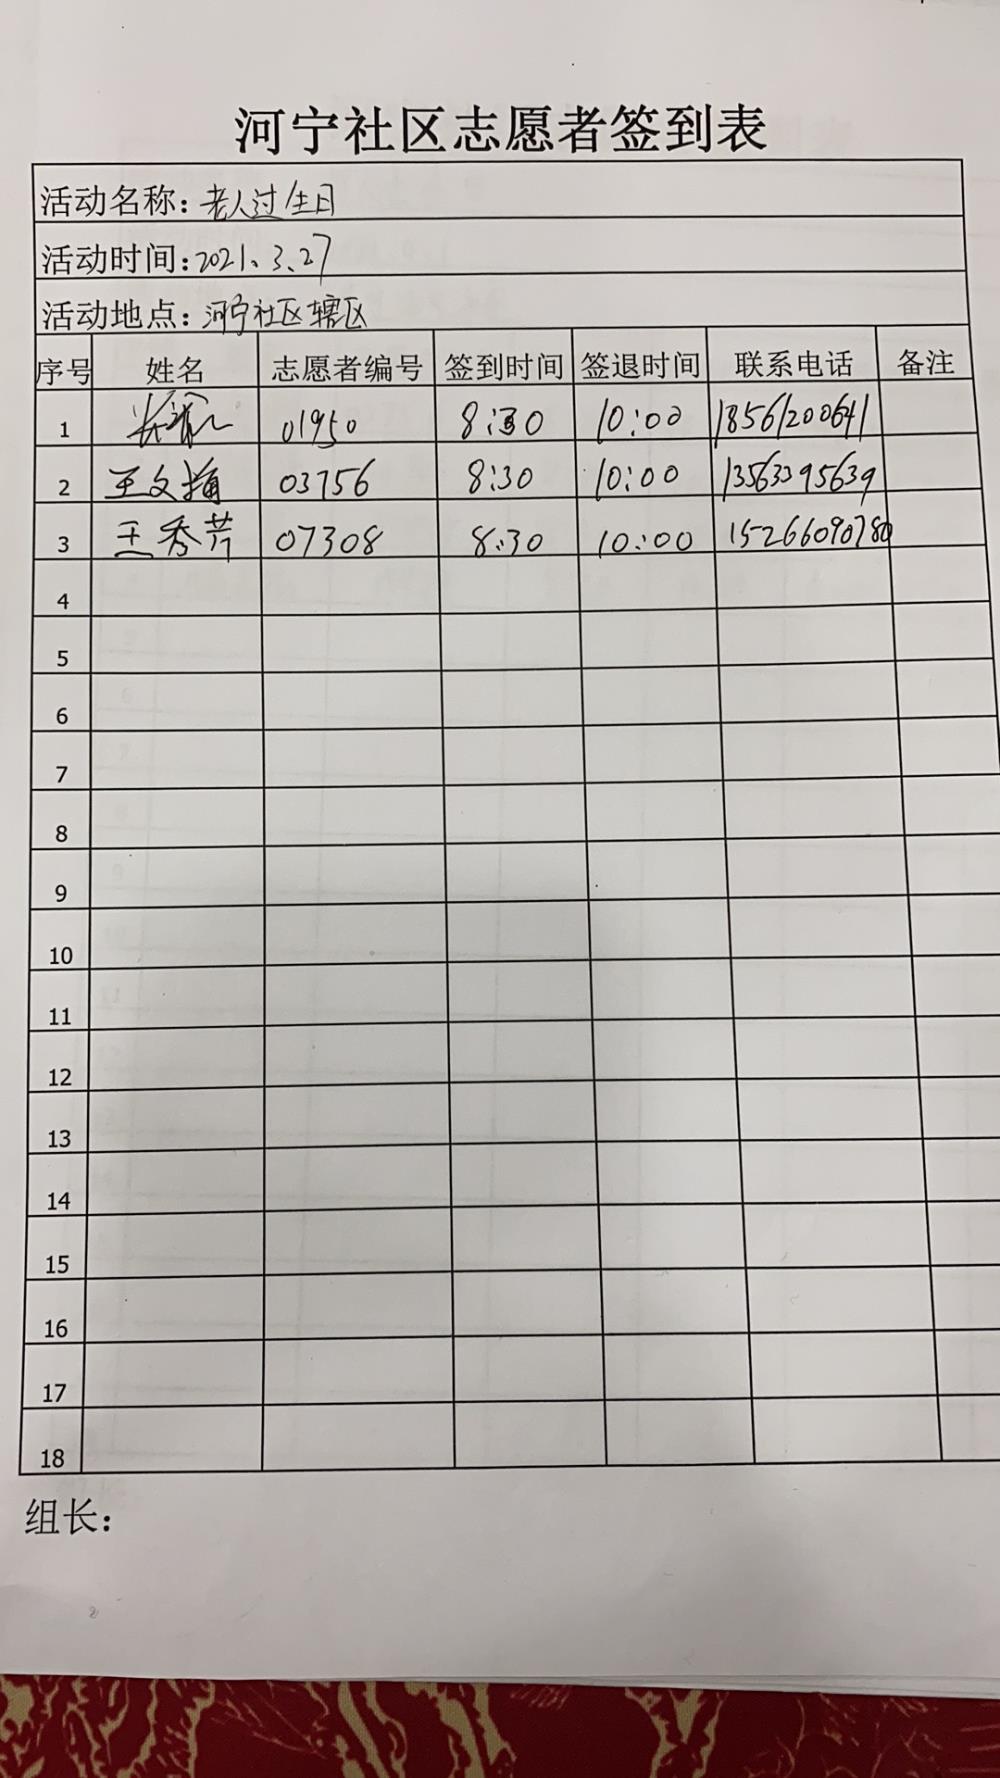 河宁社区志愿者签到表
活动名称：老人过生日
活动时间：2021.3.27
活动地点：河宁社区辖区
序号 姓名 志愿者编号 签到时间 签退时间 联系电话 备注
1 01950 8:30 10:00 18561200641
2 王文 03756 8:30 10:00 13563395639
3 王秀芹 07308 8:30 10:00 15266090780
4
5
6
7
8
9
10
11
12
13
14
15
16
17
18
组长：